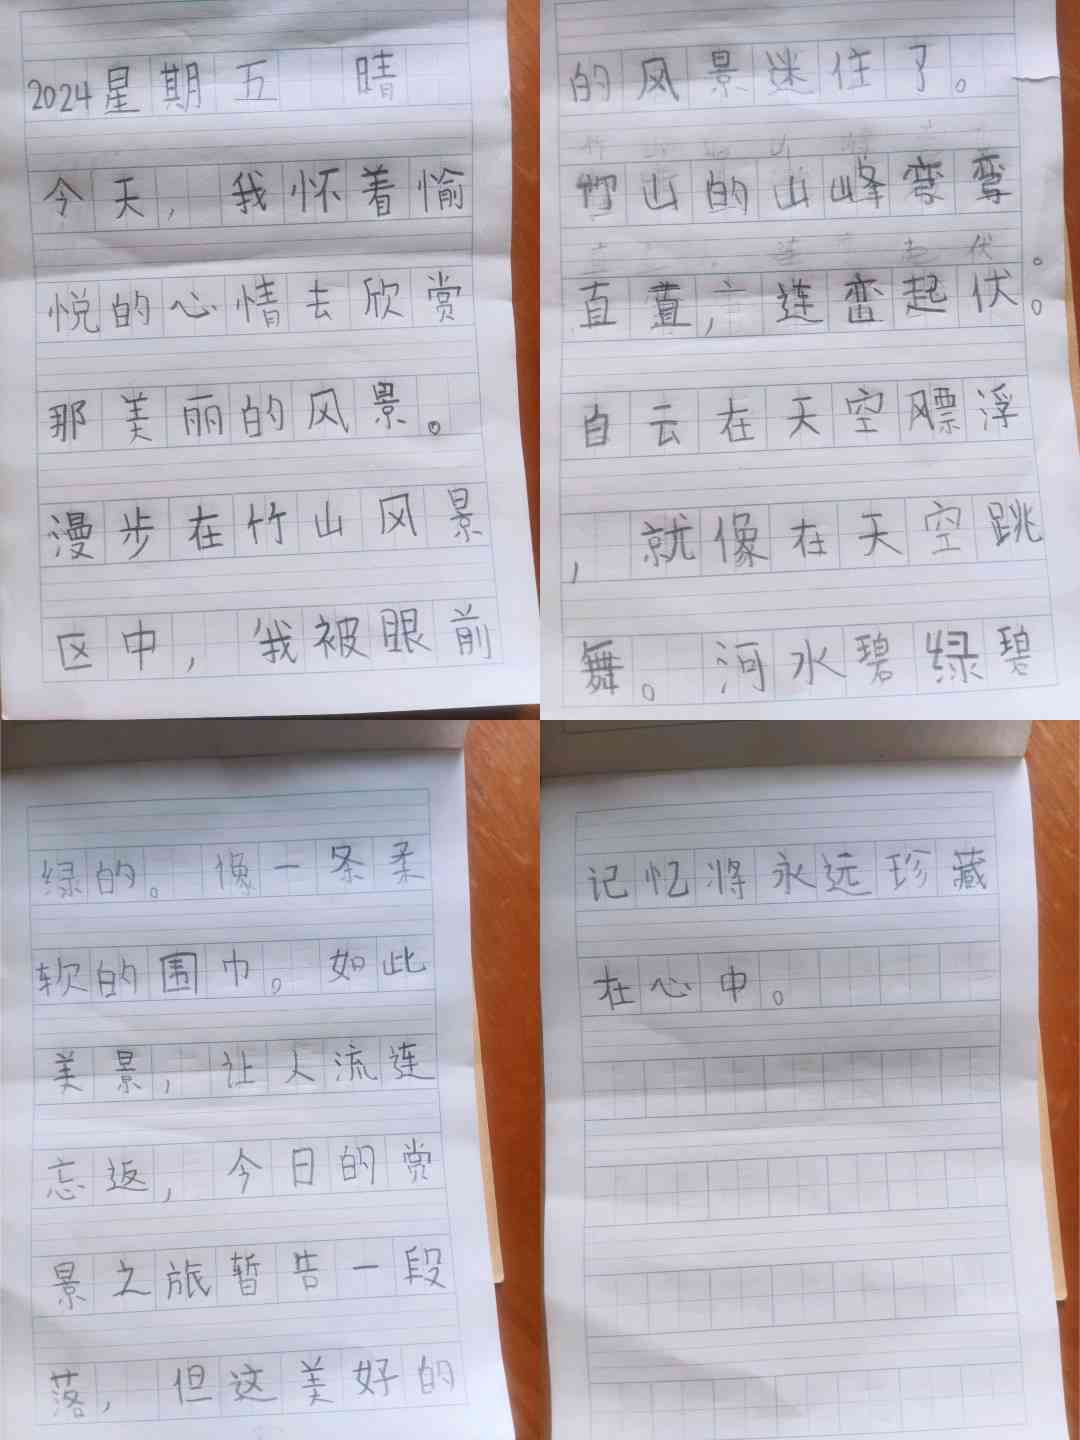 2024星期五 晴
今天,我怀着愉
悦的心情去欣赏
那美丽的风景。
漫步在竹山风景
区中,我被眼前
的风景迷住了。
竹山的山峰弯弯
直直,连峦起伏。
白云在天空飘浮
,就像在天空跳
舞。河水碧绿碧
绿的。像一条柔
软的围巾。如此
美景,让人流连
忘返,今日的赏
景之旅暂告一段
落,但这美好的
记忆将永远珍藏
在心中。